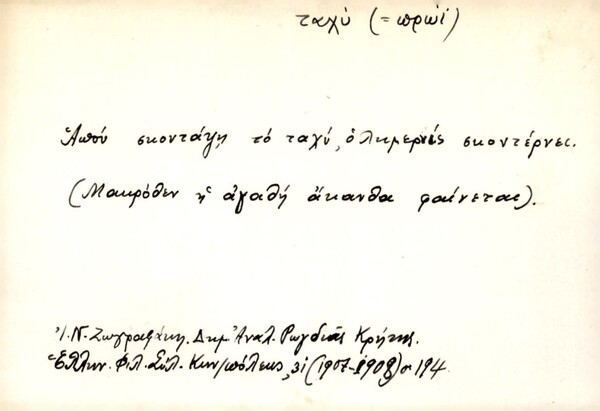 ταχύ (= πρωί)
Ἀπού σκοντάψῃ τό ταχύ, ὁλημερνίς σκοντέρνει.
(Μακρόθεν ἡ ἀγαθή ἄκανθα φαίνεται).
Ἰ. Ν. Ζωγραφάκη. Δημ. Ἀνάλ. Ῥωγδιᾶς Κρήτης.
Ἑλλην. Φιλ. Σύλ. Κων/πόλεως, (1907-1908) σ 194